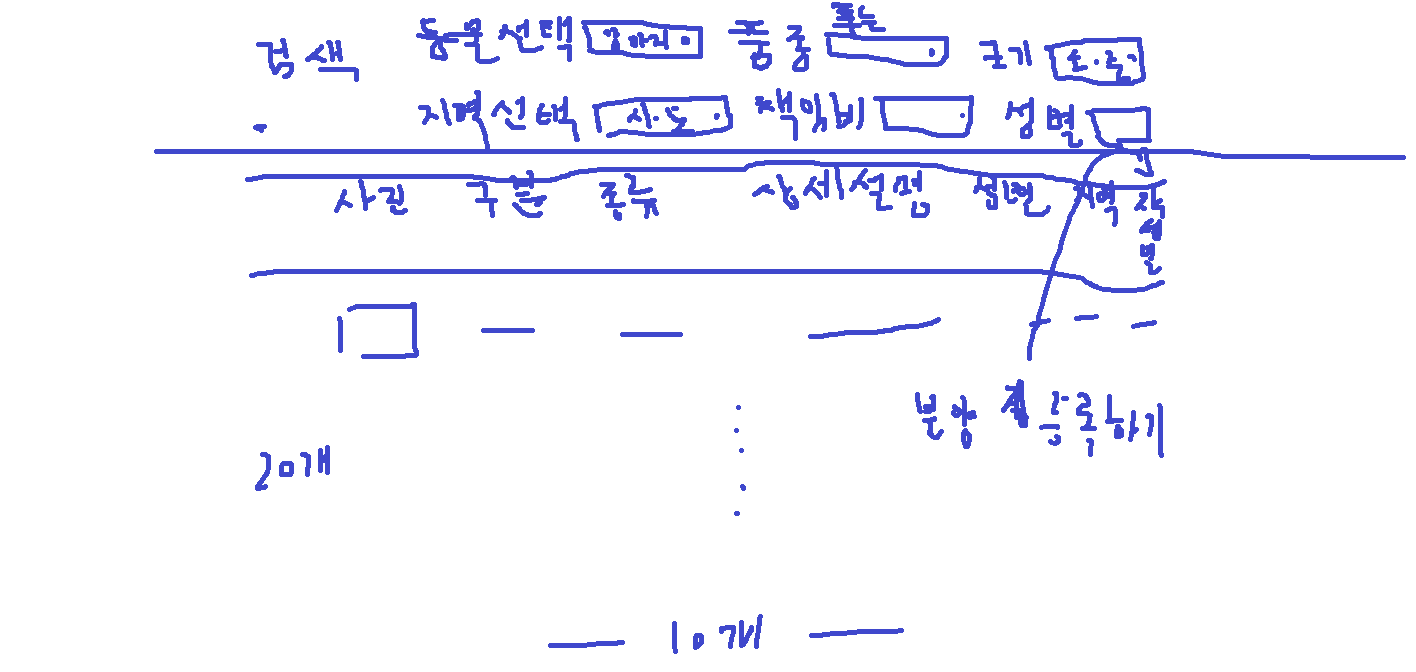 검색 동물선택 강아지 품종 푸들 크기 소.중
지역선택 시.도 책임비 성별
사진 구분 종류 상세설명 성별 지역 작성일
분양 등록하기
20개
10개